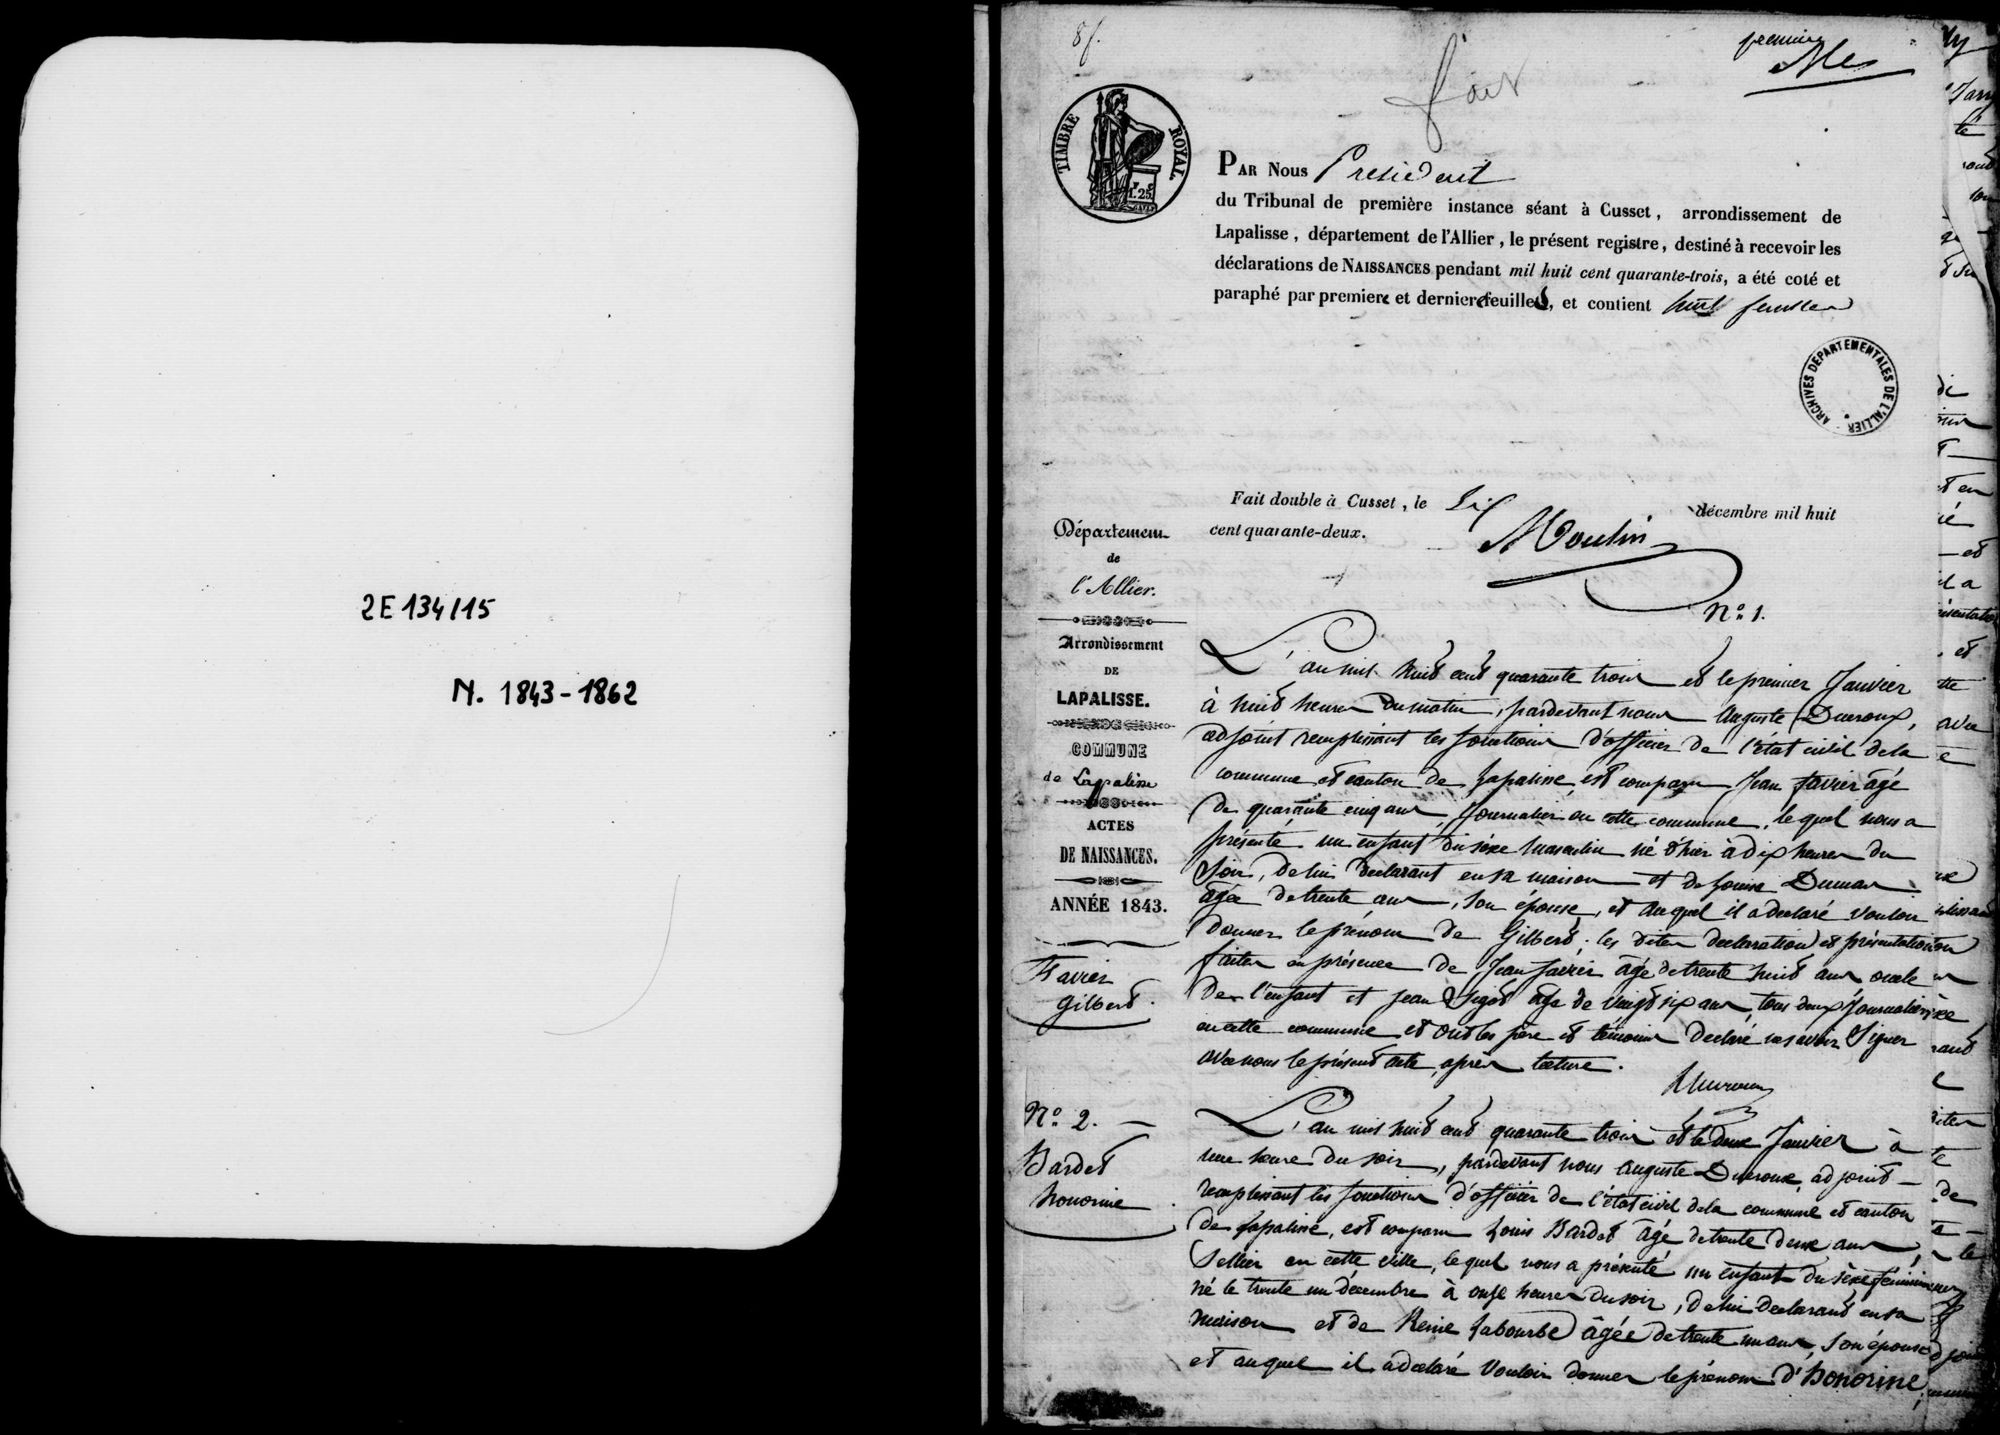 2E 134/15
N. 1843-1862
8f.
première
fait
TIMBRE ROYAL
1F. 25C.
PAR Nous Président
du Tribunal de première instance séant à Cusset, arrondissement de
Lapalisse, département de l'Allier, le présent registre, destiné à recevoir les
déclarations de NAISSANCES pendant mil huit cent quarante-trois, a été coté et
paraphé par premiere et derniere feuilles, et contient huit feuilles
ARCHIVES DÉPARTEMENTALES DE L'ALLIER
Fait double à Cusset, le dix décembre mil huit
cent quarante-deux.
Moulin
Département
de
l'Allier.
Arrondissement
DE
LAPALISSE.
COMMUNE
de Lapalisse
ACTES
DE NAISSANCES.
ANNÉE 1843.
N.o 1.
Favier
Gilbert.
L'an mil huit cent quarante trois et le premier Janvier
à huit heures du matin, pardevant nous Auguste Ducroux,
adjoint remplissant les fonctions d'officier de l'état civil de la
commune et canton de Lapalisse, est comparu Jean Favier âgé
de quarante cinq ans, Journalier en cette commune, lequel nous a
présenté un enfant du sexe masculin né d'hier à dix heures du
Soir, de lui déclarant en sa maison et de Louise Dumas
âgée de trente ans, son épouse, et auquel il a déclaré vouloir
donner le prénom de Gilbert; les dites déclaration et présentation
faites en présence de Jean Favier âgé de trente huit ans oncle
de l'enfant et Jean âgé de vingt six ans, tous deux Journaliers
en cette commune et ont les père et témoins déclaré ne savoir Signer
avec nous le présent acte, après lecture.
Ducroux
N.o 2.
Bardet
honorine
L'an mil huit cent quarante trois et le deux Janvier à
une heure du soir, pardevant nous Auguste Ducroux, adjoint
remplissant les fonctions d'officier de l'état civil de la commune et canton
de Lapalisse, est comparu Louis Bardet âgé de trente deux ans,
Sellier en cette ville, lequel nous a présenté un enfant du sexe féminin
né le trente un décembre à onze heures du soir, de lui déclarant en sa
maison et de Reine Labourbe âgée de trente un ans, son épouse
et auquel il a déclaré vouloir donner le prénom d'honorine,